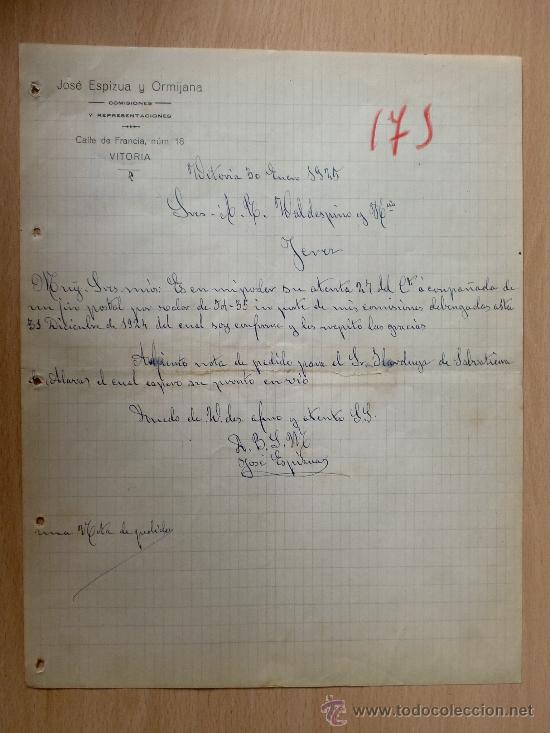 José Espizua y Ormijana
COMISIONES
Y REPRESENTACIONES
Calle de Francia, núm. 18
VITORIA
175
Vitoria 30 Enero 1925
Sres. A. R. Valdespino y Hno
Jerez
Muy Sres mios: Es en mi poder su atenta 27 del Cte acompañada de
un jiro postal por valor de 54-35 importe de mis comisiones debengadas asta
31 Diciembre de 1924 del cual soy conforme y les repito las gracias
Adjunto nota de pedido para el Sr. de Salvatierra
de Alava el cual espero su pronto envio
Quedo de Vdes afmo y atento S.S.
Q. B. S. M
José Espizua
una Nota de pedido
todocoleccion
www.todocoleccion.net